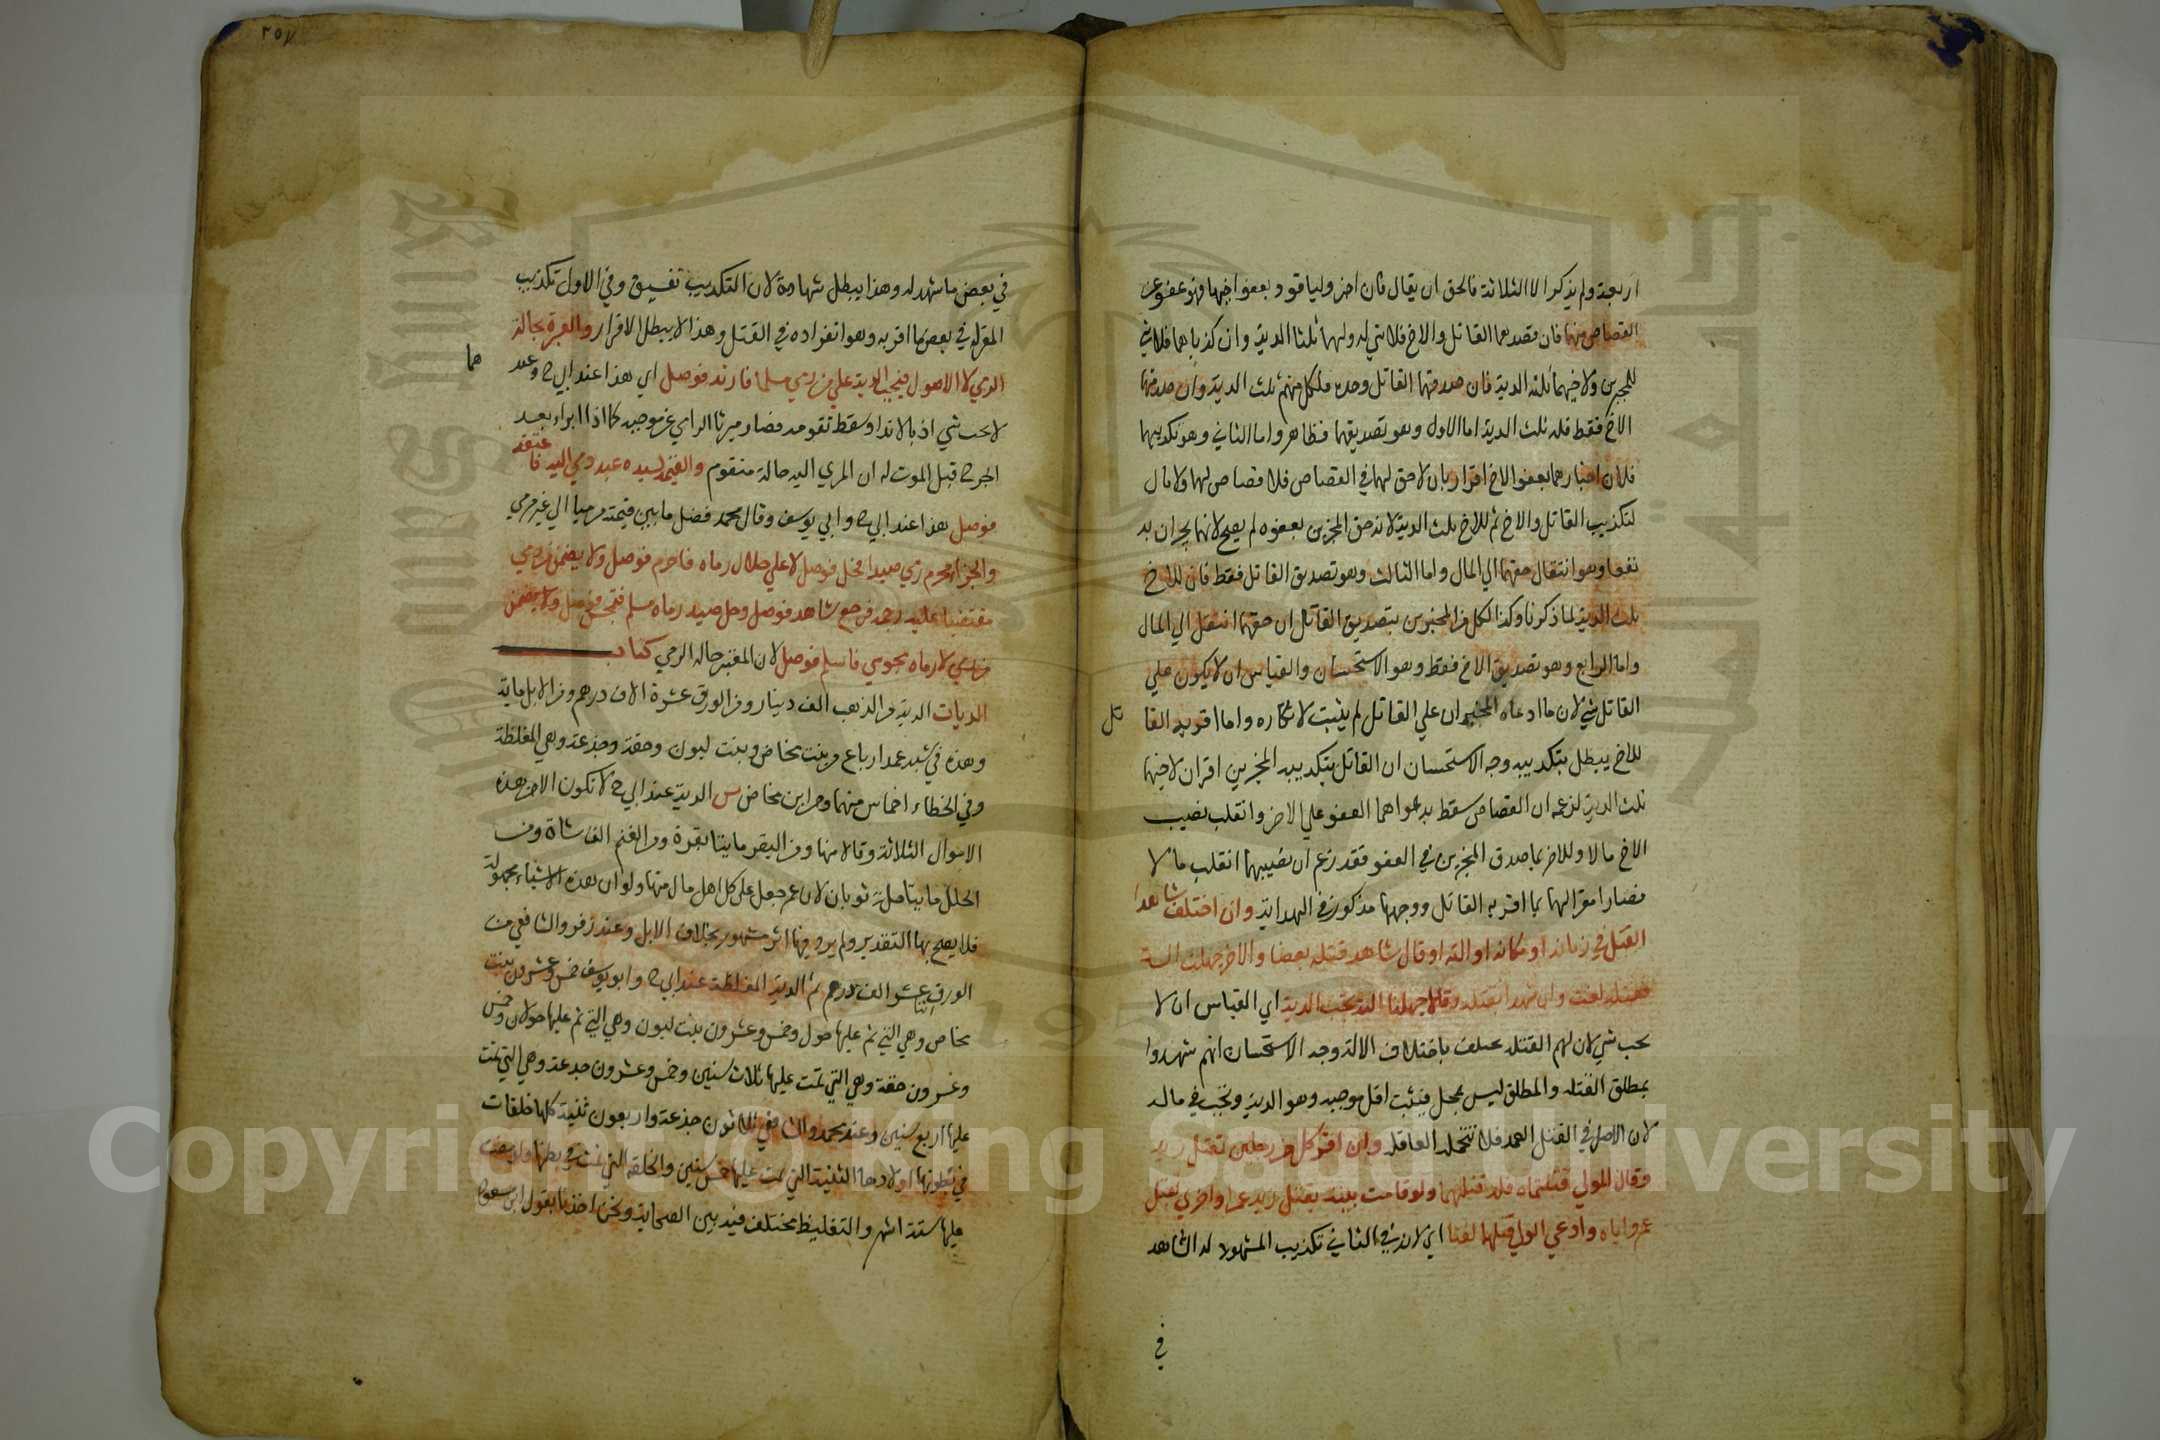 اربعة ولم يذكر الا الثلاثة فالحق ان يقال فان اخبر وليا قود بعفو اخيهما فهو عفو عن
القصاص منهما فان صدقهما القاتل والاخ فلا شي له ولهما ثلثا الدية وان كذباهما فلا شي
للمخبرين ولاخيهما ثلث الدية فان صدقهما القاتل وحده فلكل منهم ثلث الدية وان صدقهما
الاخ فقط فله ثلث الدية اما الاول وهو تصديقهما فظاهر واما الثاني وهو تكذيبهما
فلان اخبارهما بعفو الاخ اقرار بان لا حق لهما في القصاص فلا قصاص لهما ولا مال
لتكذيب القاتل والاخ ثم للاخ ثلث الدية لان حق المخبرين بعفوه لم يصح لانهما
وهو انتقال حقهما الي المال واما الثالث وهو تصديق القاتل فقط فان للاخ
ثلث الدية لما ذكرنا وكذا لكل من المخبرين بتصديق القاتل ان حقهما انتقل الي المال
واما الرابع وهو تصديق الاخ فقط وهو الاستحسان والقياس ان لا يكون علي
القاتل شي لان ما ادعاه المخبران علي القاتل لم يثبت لانكاره واما اقر به القا
تل
للاخ يبطل بتكذيبه وجه الاستحسان ان القاتل بتكذيبه المخبرين اقر ان لاخيهما
ثلث الدية لزعمه ان القصاص سقط بدعواهما العفو علي الاخر وانقلب نصيب
الاخ مالا وللاخر بما صدق المخبرين في العفو فقد زعم ان نصيبهما انقلب مالا
فصار مقرا لهما بما اقر به القاتل ووجهها مذكور في الهداية وان اختلف شاهدا
القتل في زمانه او مكانه او آلته او قال شاهد قتله بعصا والاخر جهلت آلة
قتله لغت وان شهدا بقتله وقالا جهلنا آلته تجب الدية اي القياس ان لا
يجب شي لان لهم القتله يختلف باختلاف الالة وجه الاستحسان انهم شهدوا
بمطلق القتله والمطلق ليس بمجمل فيثبت اقل موجبه وهو الدية وتجب في ماله
لان الاصل في القتل العمد فلا تتحمله العاقلة وان اقر كل من رجلين بقتل زيد
وقال الولي قتلتماه فله قتلهما ولو قامت بينة بقتل زيد عمرا واخري بقتل
عمرو اياه وادعي الولي قتلهما لغتا اي لان في الثاني تكذيب المشهود له الشاهد
في
٢٥٧
في بعض ما شهد له وهذا يبطل شهادة لان التكذيب تفسيق وفي الاول تكذيب
المقر له في بعض ما اقر به وهو انفراده في القتل وهذا لا يبطل الاقرار والعبرة بحالة
الرمي لا الوصول فيجب الدية علي من رمي مسلما فارتد فوصل اي هذا عند ابي ح وعند
هما
لا يجب شي اذ بالارتداد سقط تقومه فصار مبرئا الرامي عن موجبه كما اذا ابراه بعد
الجرح قبل الموت له ان المرمي اليه حالة متقوم والقيمة لسيد عبد رمي اليه فاعتقه
فوصل هذا عند ابي ح وابي يوسف وقال محمد فضل ما بين قيمته مرميا الي غير مرمي
والجزاء علي محرم رمي صيدا فحل فوصل لا علي حلال رماه فاحرم فوصل ولا يضمن من رمي
مقضيا عليه برجم فرجع شاهد فوصل وحل صيد رماه مسلم فتمجس فوصل ولا يضمن
من رمي لا رماه مجوسي فاسلم فوصل لان المعتبر حالة الرمي كتاب
الديات الدية من الذهب الف دينار ومن الورق عشرة الاف درهم ومن الابل ماية
وهذه في شبه عمد ارباع من بنت مخاض وبنت لبون وحقة وجذعة وهي المغلظة
وفي الخطاء اخماس منها ومن ابن مخاض س الدية عند ابي ح لا تكون الا من هذه
الاموال الثلاثة وقالا منها ومن البقر مايتا بقرة ومن الغنم الفا شاة ومن
الحلل مايتا حلة ثوبان لان عمر جعل علي كل اهل مال منها وله ان هذه الاشياء مجهولة
فلا يصح بها التقدير ولم يرد فيها اثر مشهور بخلاف الابل وعند زفر والشافعي من
الورق اثنا عشر الف درهم ثم الدية المغلظة عند ابي ح وابو يوسف خمس وعشرون بنت
مخاض وهي التي تم عليها حول وخمس وعشرون بنت لبون وهي التي تم عليها حولان وخمس
وعشرون حقة وهي التي تمت عليها ثلاث سنين وخمس وعشرون جذعة وهي التي تمت
عليها اربع سنين وعند محمد والشافعي ثلاثون جذعة واربعون ثنية كلها خلفات
في بطونها اولادها الثنية التي تمت عليها خمس سنين والخلفة التي
عليها ستة اشهر والتغليظ مختلف فيه بين الصحابة ونحن اخذنا بقول ابن مسعود
Copyright © King Saud University